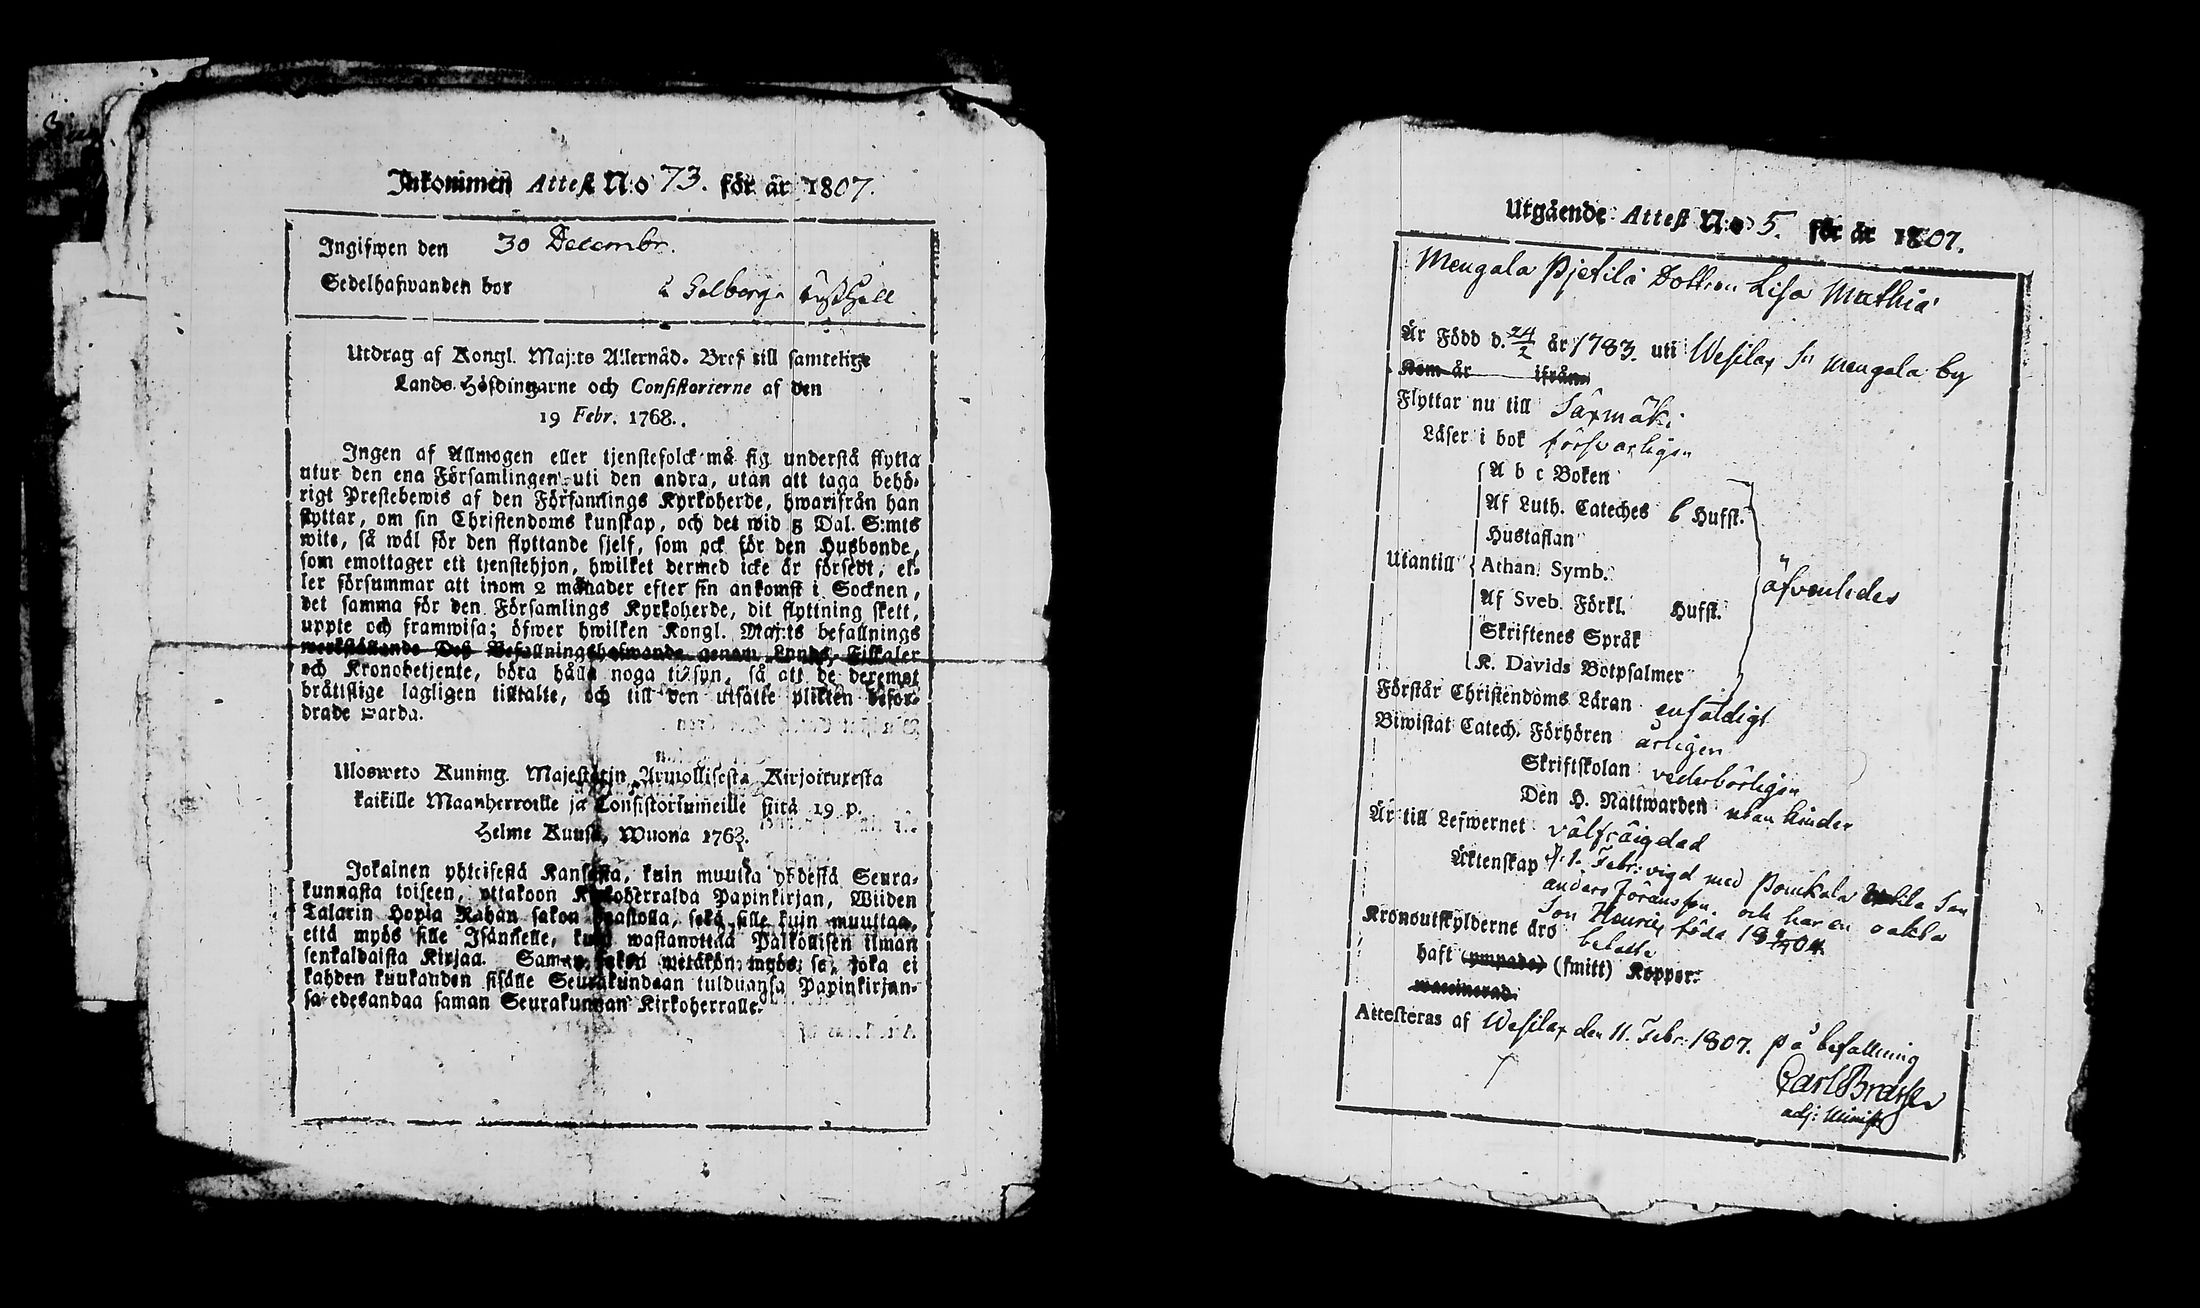 Inkommen Attest N:o 73. för år 1807.
Ingifwen den 30 Decembr.
Sedelhafwanden bor å
Utdrag af Kongl. Maj:ts Allernåd. Bref till samtelige
Lands-Höfdingarne och Consistorierne af den
19 Febr. 1768.
Ingen af Allmogen eller tjenstefolck må sig understå flytta
utur den ena Församlingen uti den andra, utan att taga behö-
rigt Prestebewis af den Församlings Kyrkoherde, hwarifrån han
flyttar, om sin Christendoms kunskap, och det wid 5 Dal. S:mts
wite, så wäl för den flyttande sjelf, som ock för den Husbonde,
som emottager ett tjenstehjon, hwilket dermed icke är försedt, el-
ler försummar att inom 2 månader efter sin ankomst i Socknen,
det samma för den Församlings Kyrkoherde, dit flyttning skett,
uppte och framwisa; öfwer hwilken Kongl. Maj:ts befallnings
werkställande Deß Befallningshafwande genom Lands-Fiskaler
och Kronobetjente, böra hålla noga tilsyn, så att de deremot
bråttslige lagligen tilltalte, och till den utsatte plikten befor-
drade warda.
Ulosweto Kuning. Majestätin Armollisesta Kirjoituxesta
kaikille Maanherroille ja Consistoriumeille siitä 19 p.
Helme Kuusa, Wuona 1768.
Jokainen yhteisestä Kansasta, kuin muutta yhdestä Seura-
kunnasta toiseen, ottakoon Kirkoherralda Papinkirjan, Wiiden
Talarin Hopia Rahan sakon haastolla, sekä sille kuin muuttaa,
että myös sille Isännelle, kuin wastanottaa Palkollisen ilman
senkaldaista Kirjaa. Saman sakon wetäkön myös se, joka ei
kahden kuukauden sisälle Seurakundaan tulduansa Papinkirjan-
sa edesandaa saman Seurakunnan Kirkoherralle.
Utgående Attest N:o 5. för år 1807.
Mengala Pjetilä Dottren Lisa Mathiä
Är Född d. 24/2 år 1783. uti Wesilax Sn Mengala by
Kom år ifrån
Flyttar nu till Säxmäki
Läser i bok försvarligen
A b c Boken
Af Luth. Cateches 6 Hufst.
Hustaflan
Utantill Athan. Symb. äfvenledes
Af Sveb. Förkl. Hufst.
Skriftenes Språk
K. Davids Botpsalmer
Förstår Christendoms Läran enfaldigt
Biwistat Catech. Förhören årligen
Skriftskolan vederbörligen
Den H. Nattwarden utan hinder
Är till Lefwernet välfräigdad
Äktenskap d. 1. Febr. vigd med Pouckala Uotila Son
Anders Göransson. och har en oäkta
Son Henric född 18 04.
Kronoutskylderne äro betalte
haft (ympade) (smitt) Koppor.
waccinerad.
Attesteras af Wesilax den 11. Febr. 1807. på befallning
Carl
adj: Minist